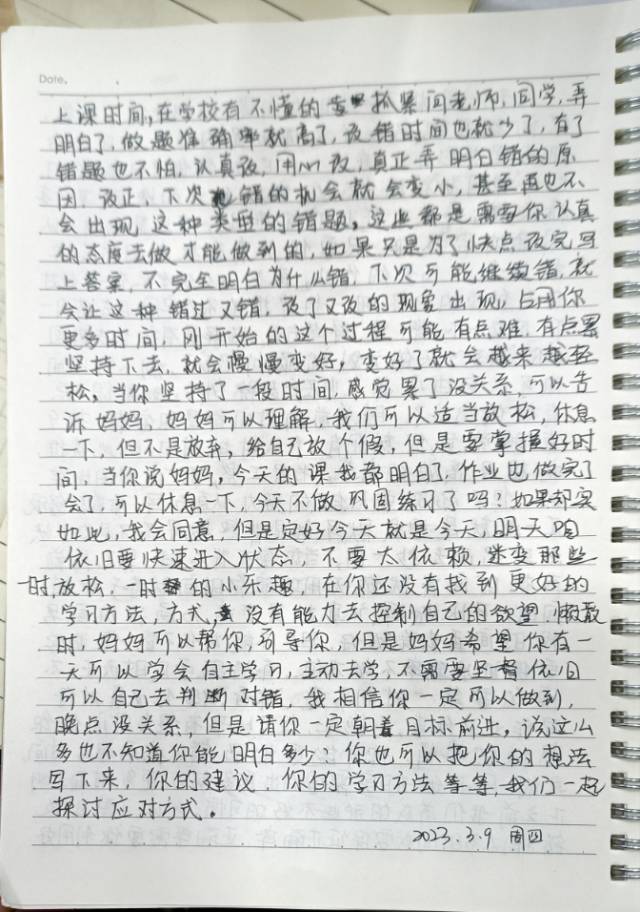 Date.
上课时间,在学校有不懂的抓紧问老师,同学,弄
明白了,做题准确率就高了,改错时间也就少了,有了
错题也不怕,认真改,用心改,真正弄明白错的原
因,改正,下次错的机会就会变小,甚至再也不
会出现这种类型的错题,这些都是需要你认真
的态度去做才能做到的,如果只是为了快点改完写
上答案,不完全明白为什么错,下次可能继续错,就
会让这种错过又错,改了又改的现象出现,占用你
更多时间,刚开始的这个过程可能有点难,有点累
坚持下去,就会慢慢变好,变好了就会越来越轻
松,当你坚持了一段时间,感觉累了没关系,可以告
诉妈妈,妈妈可以理解,我们可以适当放松,休息
一下,但不是放弃,给自己放个假,但是要掌握好时
间,当你说妈妈,今天的课我都明白了,作业也做完了
会了,可以休息一下,今天不做巩固练习了吗?如果却实
如此,我会同意,但是定好今天就是今天,明天咱
依旧要快速进入状态,不要太依赖,迷变那些
时,放松,一时的小乐趣,在你还没有找到更好的
学习方法,方式,没有能力去控制自己的欲望,懒散
时,妈妈可以帮你,引导你,但是妈妈希望你有一
天可以学会自主学习,主动去学,不需要坚督依旧
可以自己去判断对错,我相信你一定可以做到,
晚点没关系,但是请你一定朝着目标前进,说这么
多也不知道你能明白多少?你也可以把你的想法
写下来,你的建议,你的学习方法等等,我们一起
探讨应对方式。
2023.3.9 周四